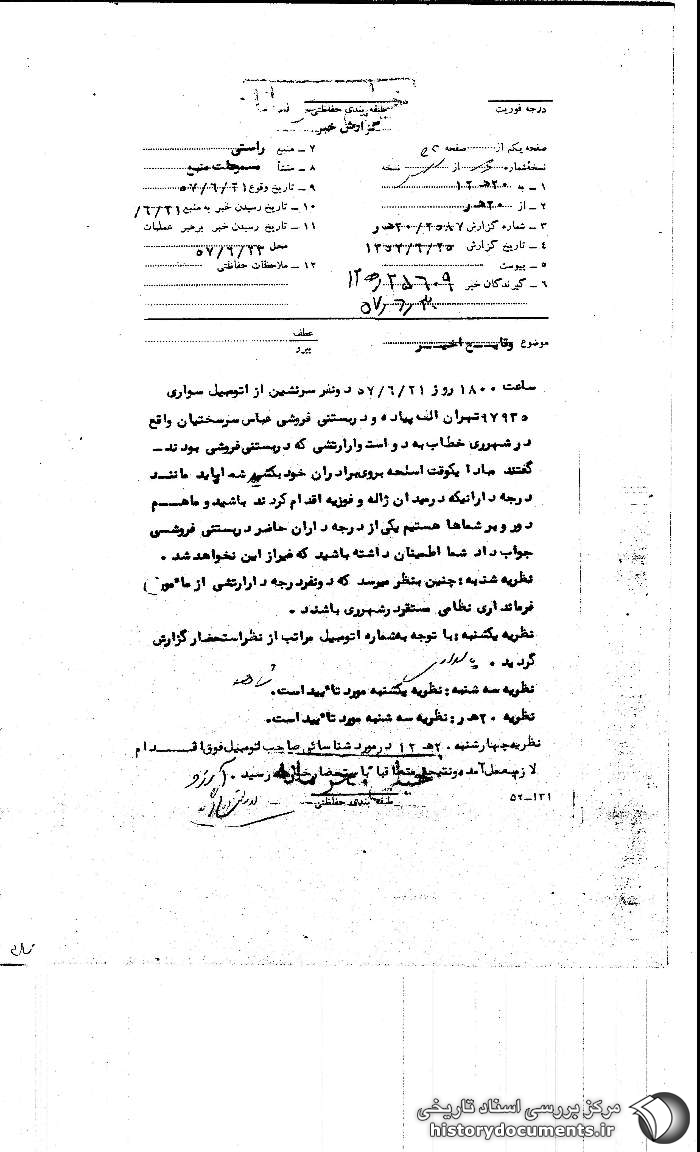 درجه فوریت
طبقه بندی حفاظتی
گزارش خبر
صفحه یکم از صفحه
نسخه شماره از نسخه
۱ ـ به ۲۰هـ ۱۲
۲ ـ از ۲۰هـ ر
۳ ـ شماره گزارش ۲۰/۲۵۸۷هـ ر
۴ ـ تاریخ گزارش
۵ ـ پیوست
۶ ـ گیرندگان خبر
۷ ـ منبع راستی
۸ ـ منشأ
۹ ـ تاریخ وقوع ۵۷/۶/۲۱
۱۰ ـ تاریخ رسیدن خبر به منبع ۶/۲۱/
۱۱ ـ تاریخ رسیدن خبر برهبر عملیات
محل ۵۷/۶/۲۳
۱۲ ـ ملاحظات حفاظتی
موضوع وقایع اخیر
عطف
پیرو
ساعت ۱۸۰۰ روز ۵۷/۶/۲۱ دونفر سرنشین از اتومبیل سواری
۹۷۹۳۵ تهران الف پیاده و دربستنی فروشی عباس سرسختیان واقع
در شهرری خطاب به دو استوار ارتشی که دربستنی فروشی بودند ـ
گفتند مبادا یکوقت اسلحه بروی برادران خود بکشید شما باید مانند
درجه دارانیکه درمیدان ژاله و فوزیه اقدام کردند باشید و ماهم
دور و بر شماها هستیم یکی از درجه داران حاضر دربستنی فروشی
جواب داد شما اطمینان داشته باشید که غیراز این نخواهد شد .
نظریه شنبه : چنین بنظر میرسد که دونفر درجه دار ارتشی از مامور
فرمانداری نظامی مستقر در شهرری باشند .
نظریه یکشنبه : با توجه به شماره اتومبیل مراتب از نظر استحضار گزارش
گردید .
نظریه سه شنبه : نظریه یکشنبه مورد تائید است .
نظریه ۲۰هـ ر : نظریه سه شنبه مورد تائید است .
نظریه چهارشنبه . ۲۰هـ ۱۲ درمورد شناسائی صاحب اتومبیل فوق اقدام
لازم بعمل آمده ونتیجه متعاقبا باستحضار خواهد رسید .
طبقه بندی حفاظتی
۵۲-۱۳۱
مرکز بررسی اسناد تاریخی
historydocuments.ir